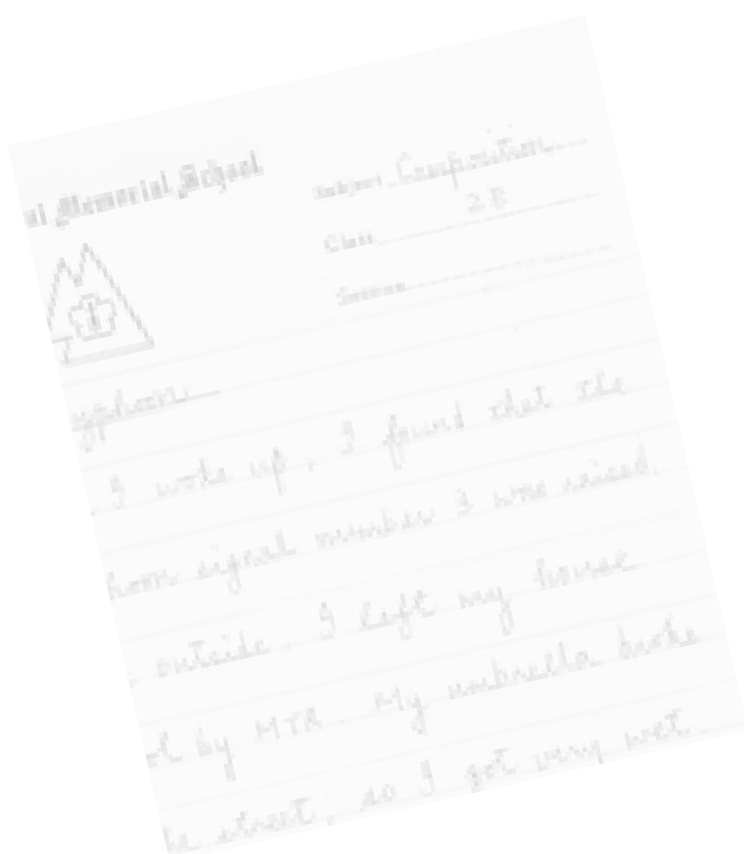 al Memorial School
Composition
Class 2B
typhoon
I woke up, I found that the
signal number 3 was raised.
outside. I left my house
by MTR. My umbrella broke
street, so I got very wet